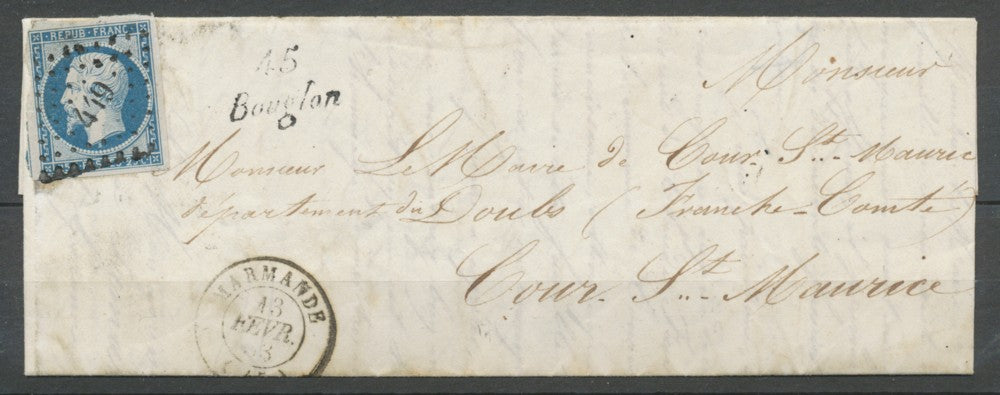 REPUB. FRANC.
419
45
Bouglon
Monsieur
Monsieur Le Maire de Cour St. Maurice
département du Doubs (Franche-Comté)
Cour St. Maurice
MARMANDE
13
FEVR.